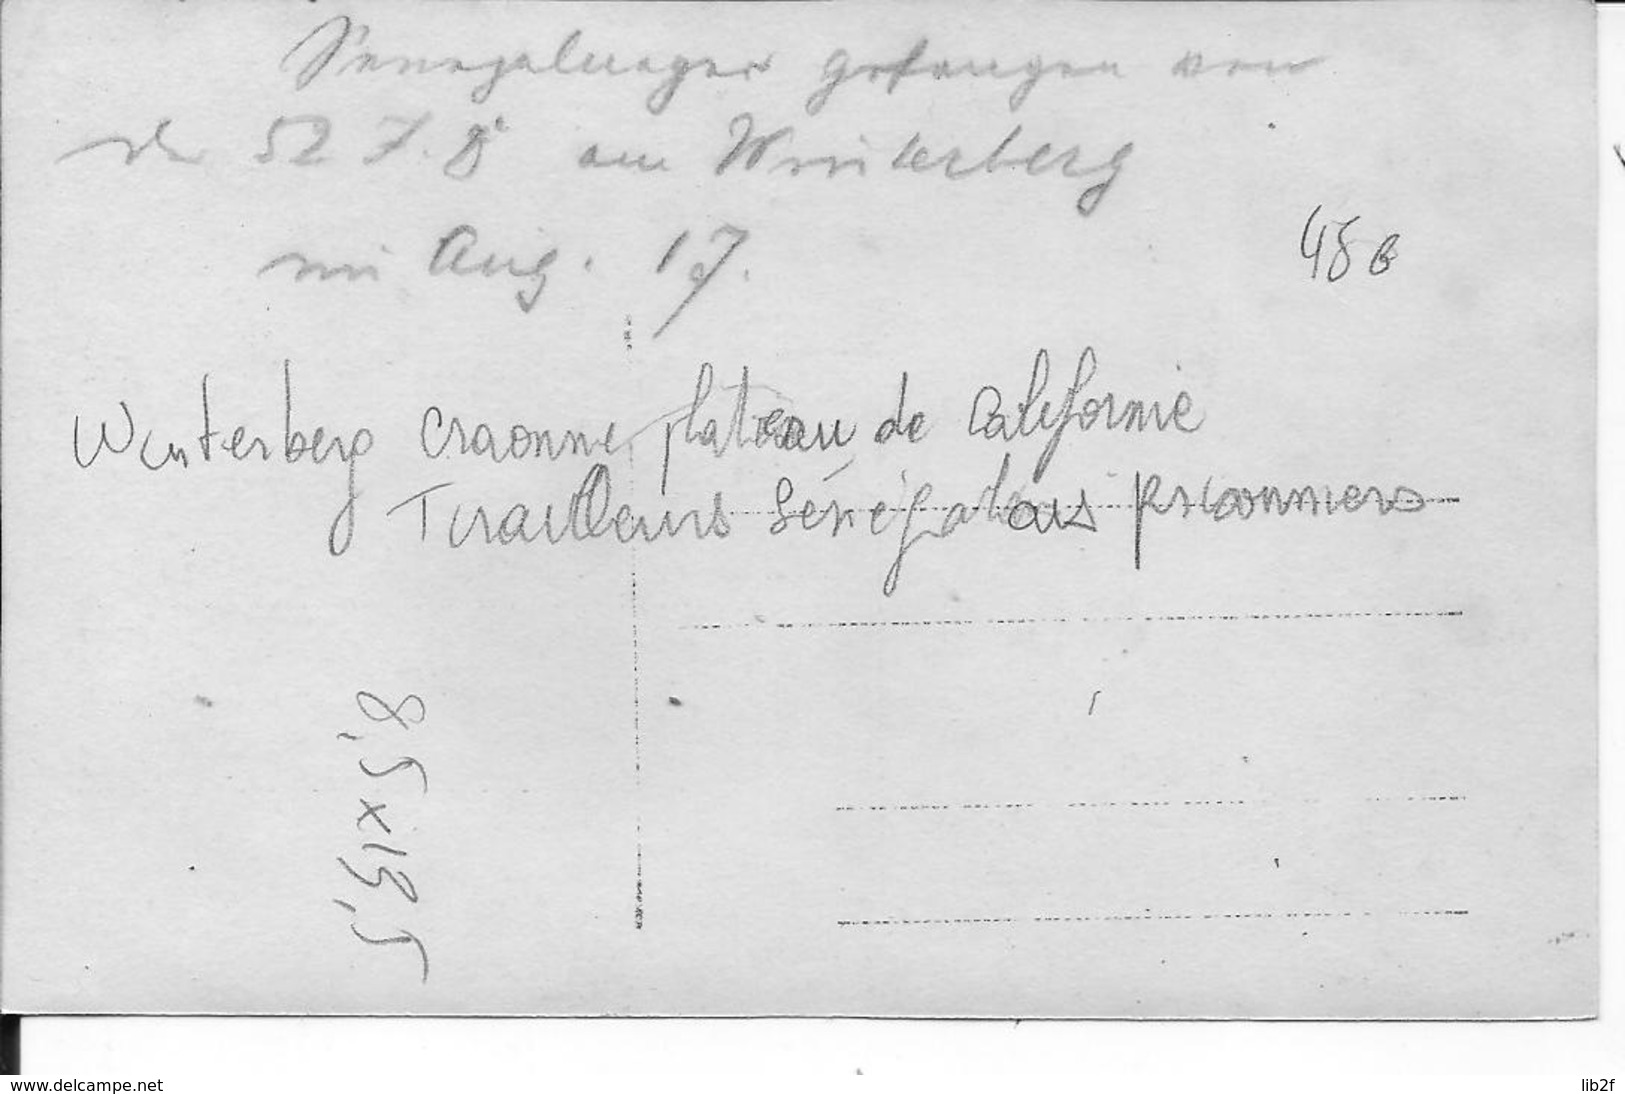 Senegalneger gefangen von
der 52 I. D am Winterberg
im Aug. 17.
48 B
Winterberg Craonne, plateau de Californie
Tirailleurs Sénégalais prisonniers
8,5 x 13,5
www.delcampe.net
lib2f